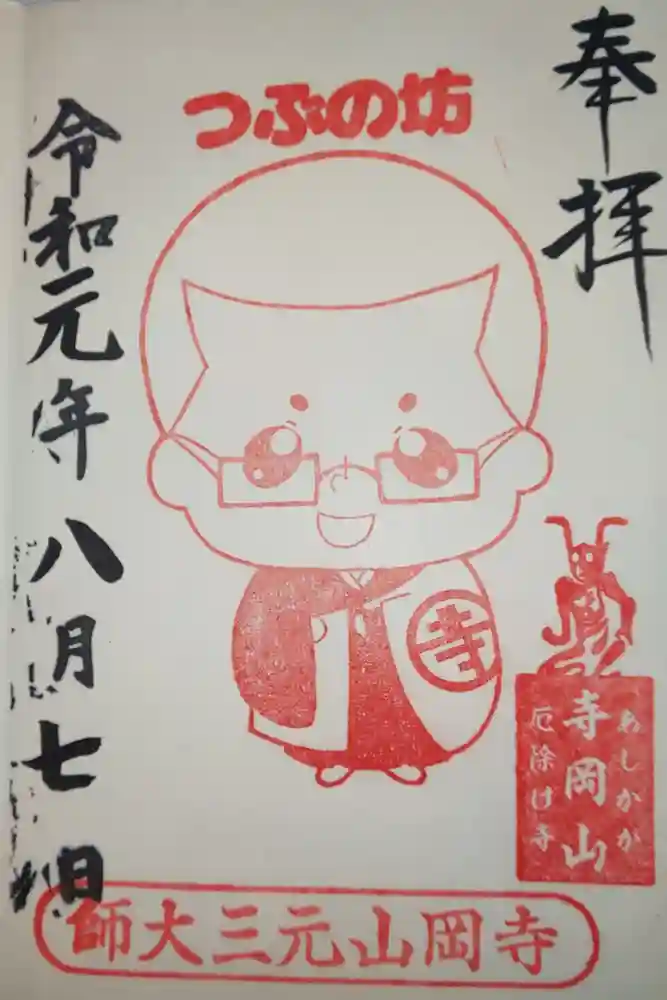 奉拝
つぶの坊
寺
あしかが
寺岡山
厄除け寺
令和元年八月七日
寺岡山元三大師